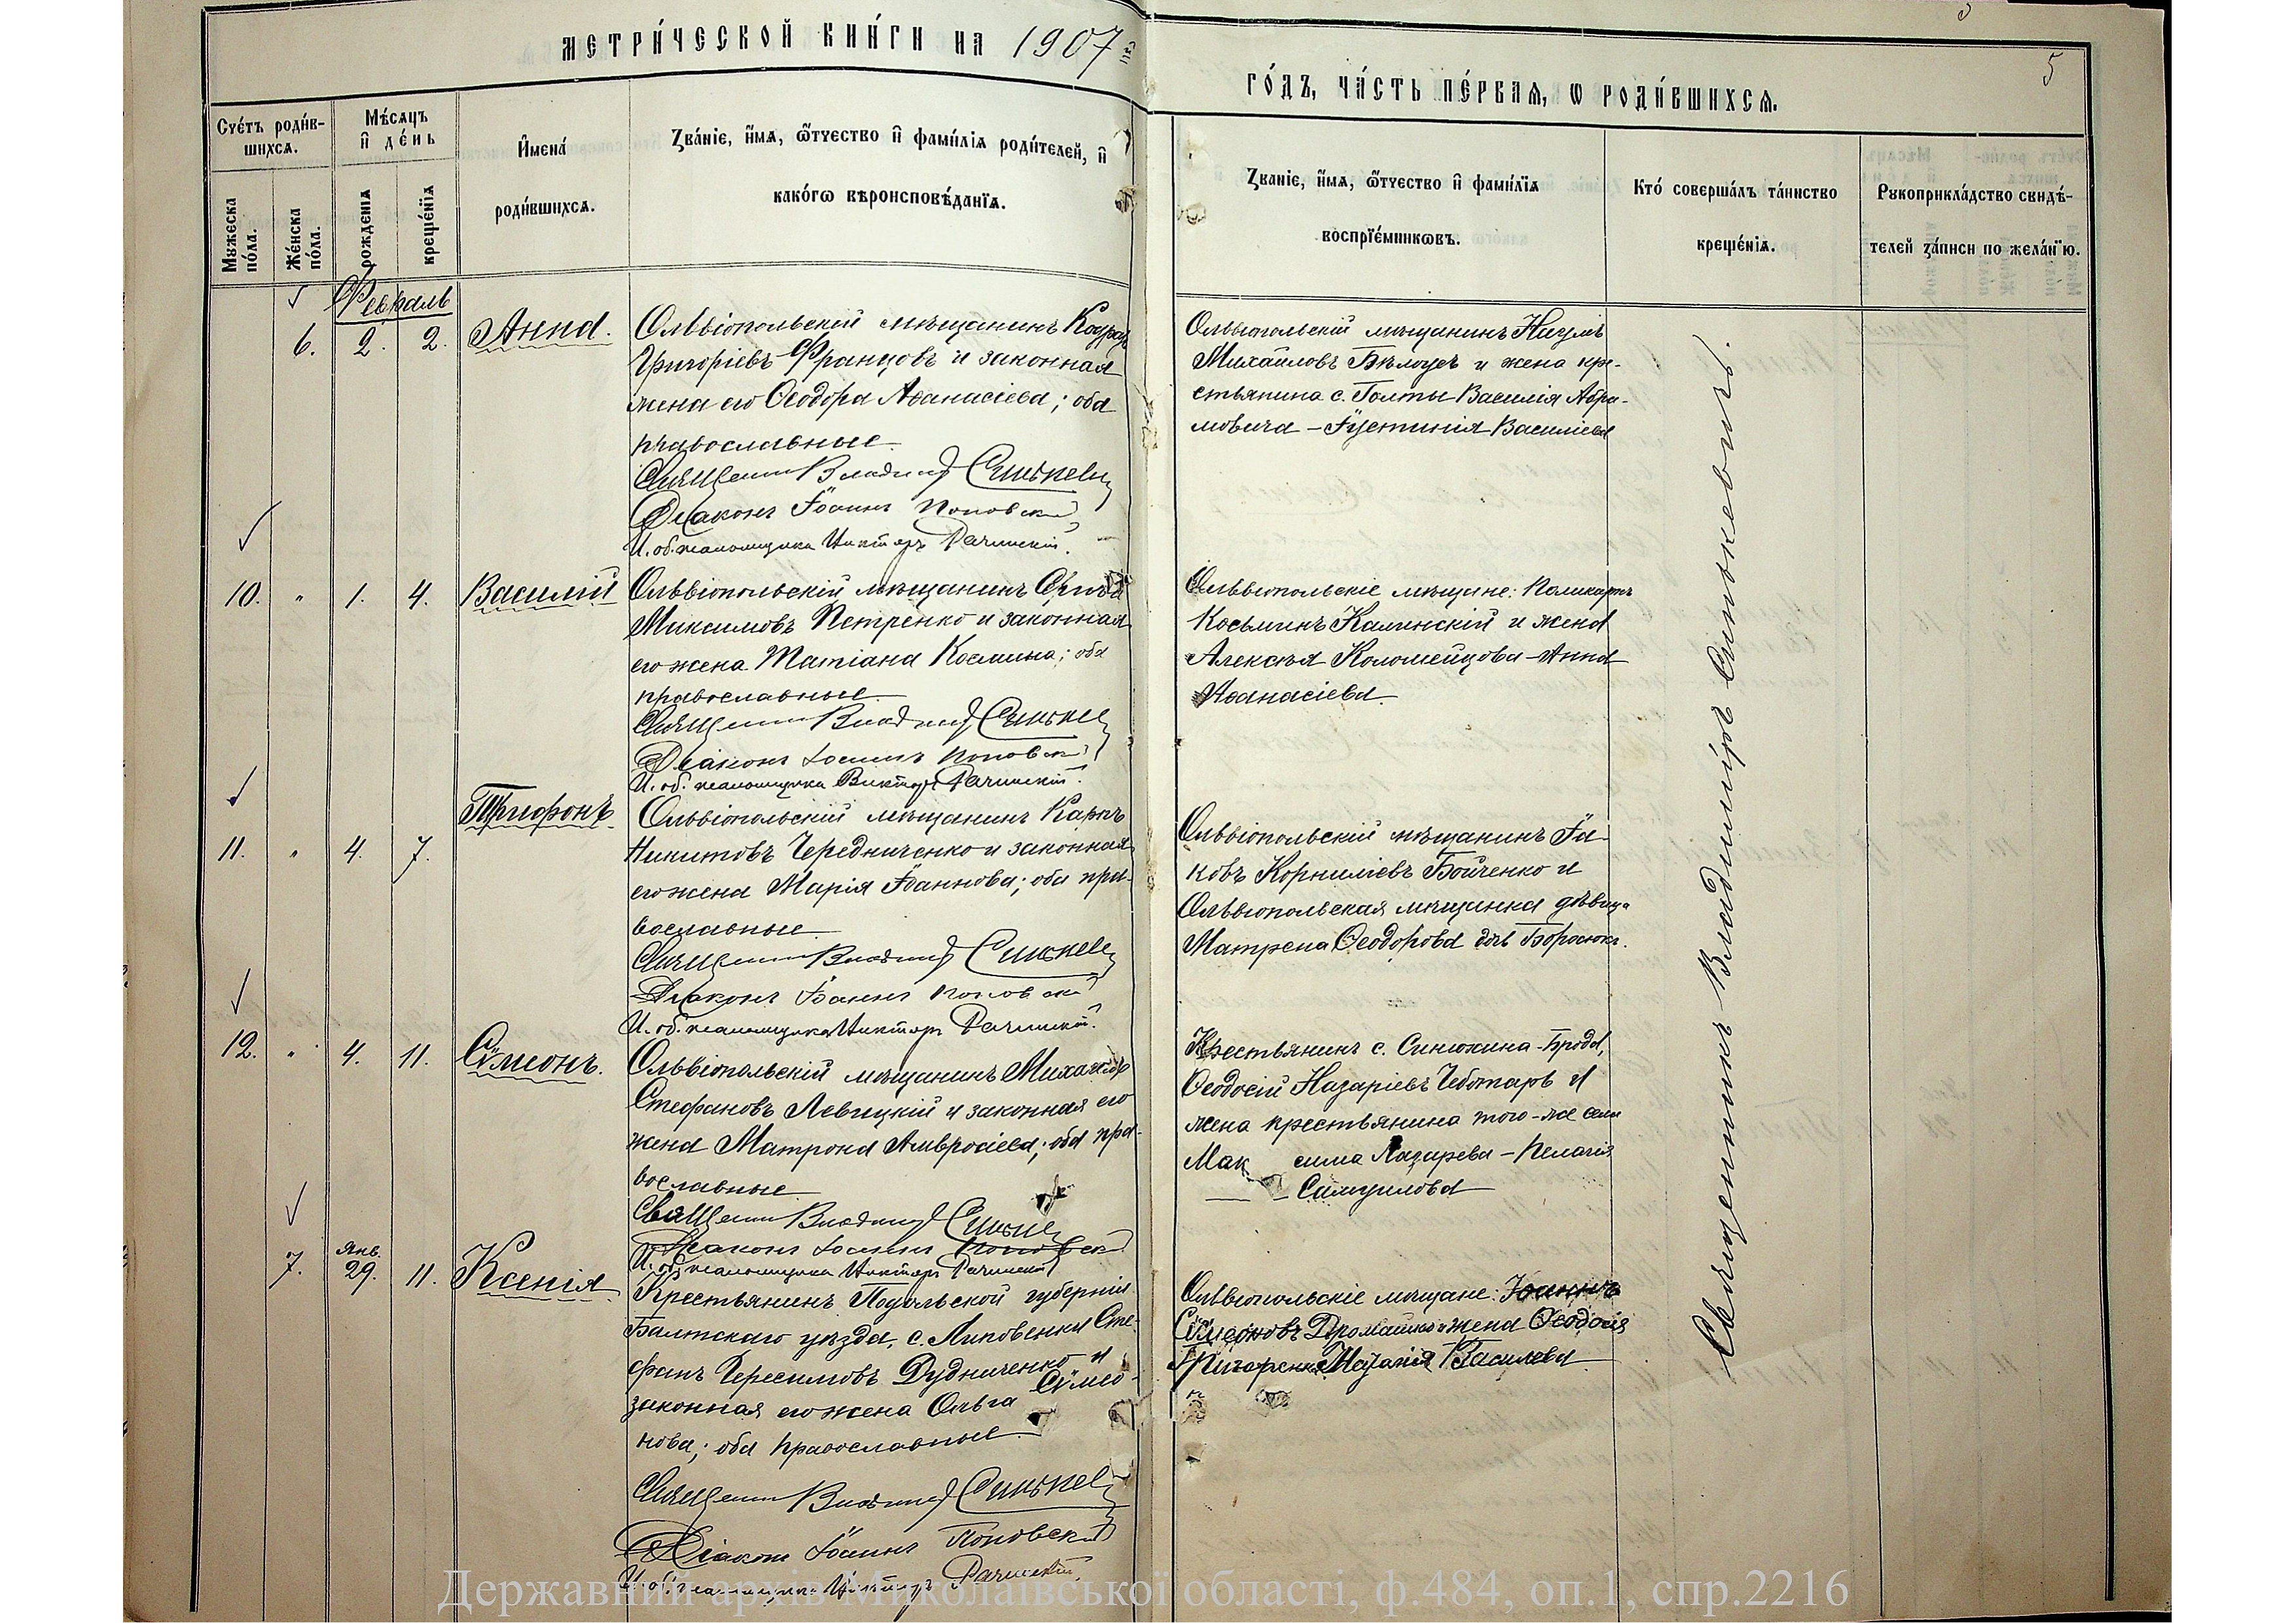 МЕТРИ́ЧЕСКОЙ КНИ́ГИ НА 1907
ГО́ДЪ, ЧА́СТЬ ПЕ́РВАѦ, Ѡ РОДИ́ВШИХСѦ.
5
Счётъ роди́в-
шихсѧ.
Мѣ́сѧцъ
и҆ де́нь
И҆мена́
роди́вшихсѧ.
Зва́нїе, и҆́мѧ, ѻ҆́тчество и҆ фами́лїѧ роди́телей, и҆
како́гѡ вѣроисповѣ́данїѧ.
Зва́нїе, и҆́мѧ, ѻ҆́тчество и҆ фами́лїѧ
воспрїе́мникѡвъ.
Кто́ соверша́лъ та́инство
креще́нїѧ.
Рꙋкоприкла́дство свидѣ́-
телей за́писи по жела́нїю.
Мꙋжеска
по́ла.
Же́нска
по́ла.
рожденїѧ
креще́нїѧ
Февраль
6. 2. 2. Анна.
Ольвіопольскій мѣщанинъ
Григоріевъ Францовъ и законная
жена его Ѳеодора Аѳанасіева; оба
православные
Священникъ Владиміръ Синькевичъ
Діаконъ Іоаннъ Поповскій
И. об. псаломщика Викторъ Рачинскій.
Ольвіопольскій мѣщанинъ Наумъ
Михайловъ Бѣлоусъ и жена кре-
стьянина с. Голты Василія Абра-
мовича – Іустинія Василіева
10. " 1. 4. Василій
Ольвіопольскій мѣщанинъ
Максимовъ Петренко и законная
его жена Татіана Космина; оба
православные
Священникъ Владиміръ Синькевичъ
Діаконъ Іоаннъ Поповскій
И. об. псаломщика Викторъ Рачинскій.
Ольвіопольскіе мѣщане: Поликарпъ
Косьминъ Калинскій и жена
Алексѣя Коломейцова – Анна
Аѳанасіева
11. " 4. 7. Трифонъ.
Ольвіопольскій мѣщанинъ Карпъ
Никитовъ Чередниченко и законная
его жена Марія Іоаннова; оба пра-
вославные
Священникъ Владиміръ Синькевичъ
Діаконъ Іоаннъ Поповскій
И. об. псаломщика Викторъ Рачинскій.
Ольвіопольскій мѣщанинъ Іа-
ковъ Корниліевъ Бойченко и
Ольвіопольская мѣщанка дѣвица
Матрена Ѳеодорова дочь
12. " 4. 11. Сѵмеонъ.
Ольвіопольскій мѣщанинъ Михаилъ
Стефановъ Левицкій и законная его
жена Матрона Амвросіева; оба пра-
вославные
Священникъ Владиміръ Синькевичъ
Діаконъ Іоаннъ Поповскій
И. об. псаломщика Викторъ Рачинскій
Крестьянинъ с. Синюхина-Брода,
Ѳеодосій Назаріевъ Чеботаръ и
жена крестьянина того-же села
Максима Лазарева – Пелагія
Самуилова
7. Янв. 29. 11. Ксенія
Крестьянинъ Подольской губерніи
Балтскаго уѣзда, с. Липовенки Сте-
фанъ Герасимовъ Дудниченко и
законная его жена Ольга Сѵмео-
нова; оба православные
Священникъ Владиміръ Синькевичъ
Діаконъ Іоаннъ Поповскій
И. об. псаломщика Викторъ Рачинскій.
Ольвіопольскіе мѣщане: Іоаннъ
Сѵмеоновъ и жена Ѳеодосія
Василева
Священникъ Владиміръ Синькевичъ.
Державний архів Миколаївської області, ф.484, оп.1, спр.2216